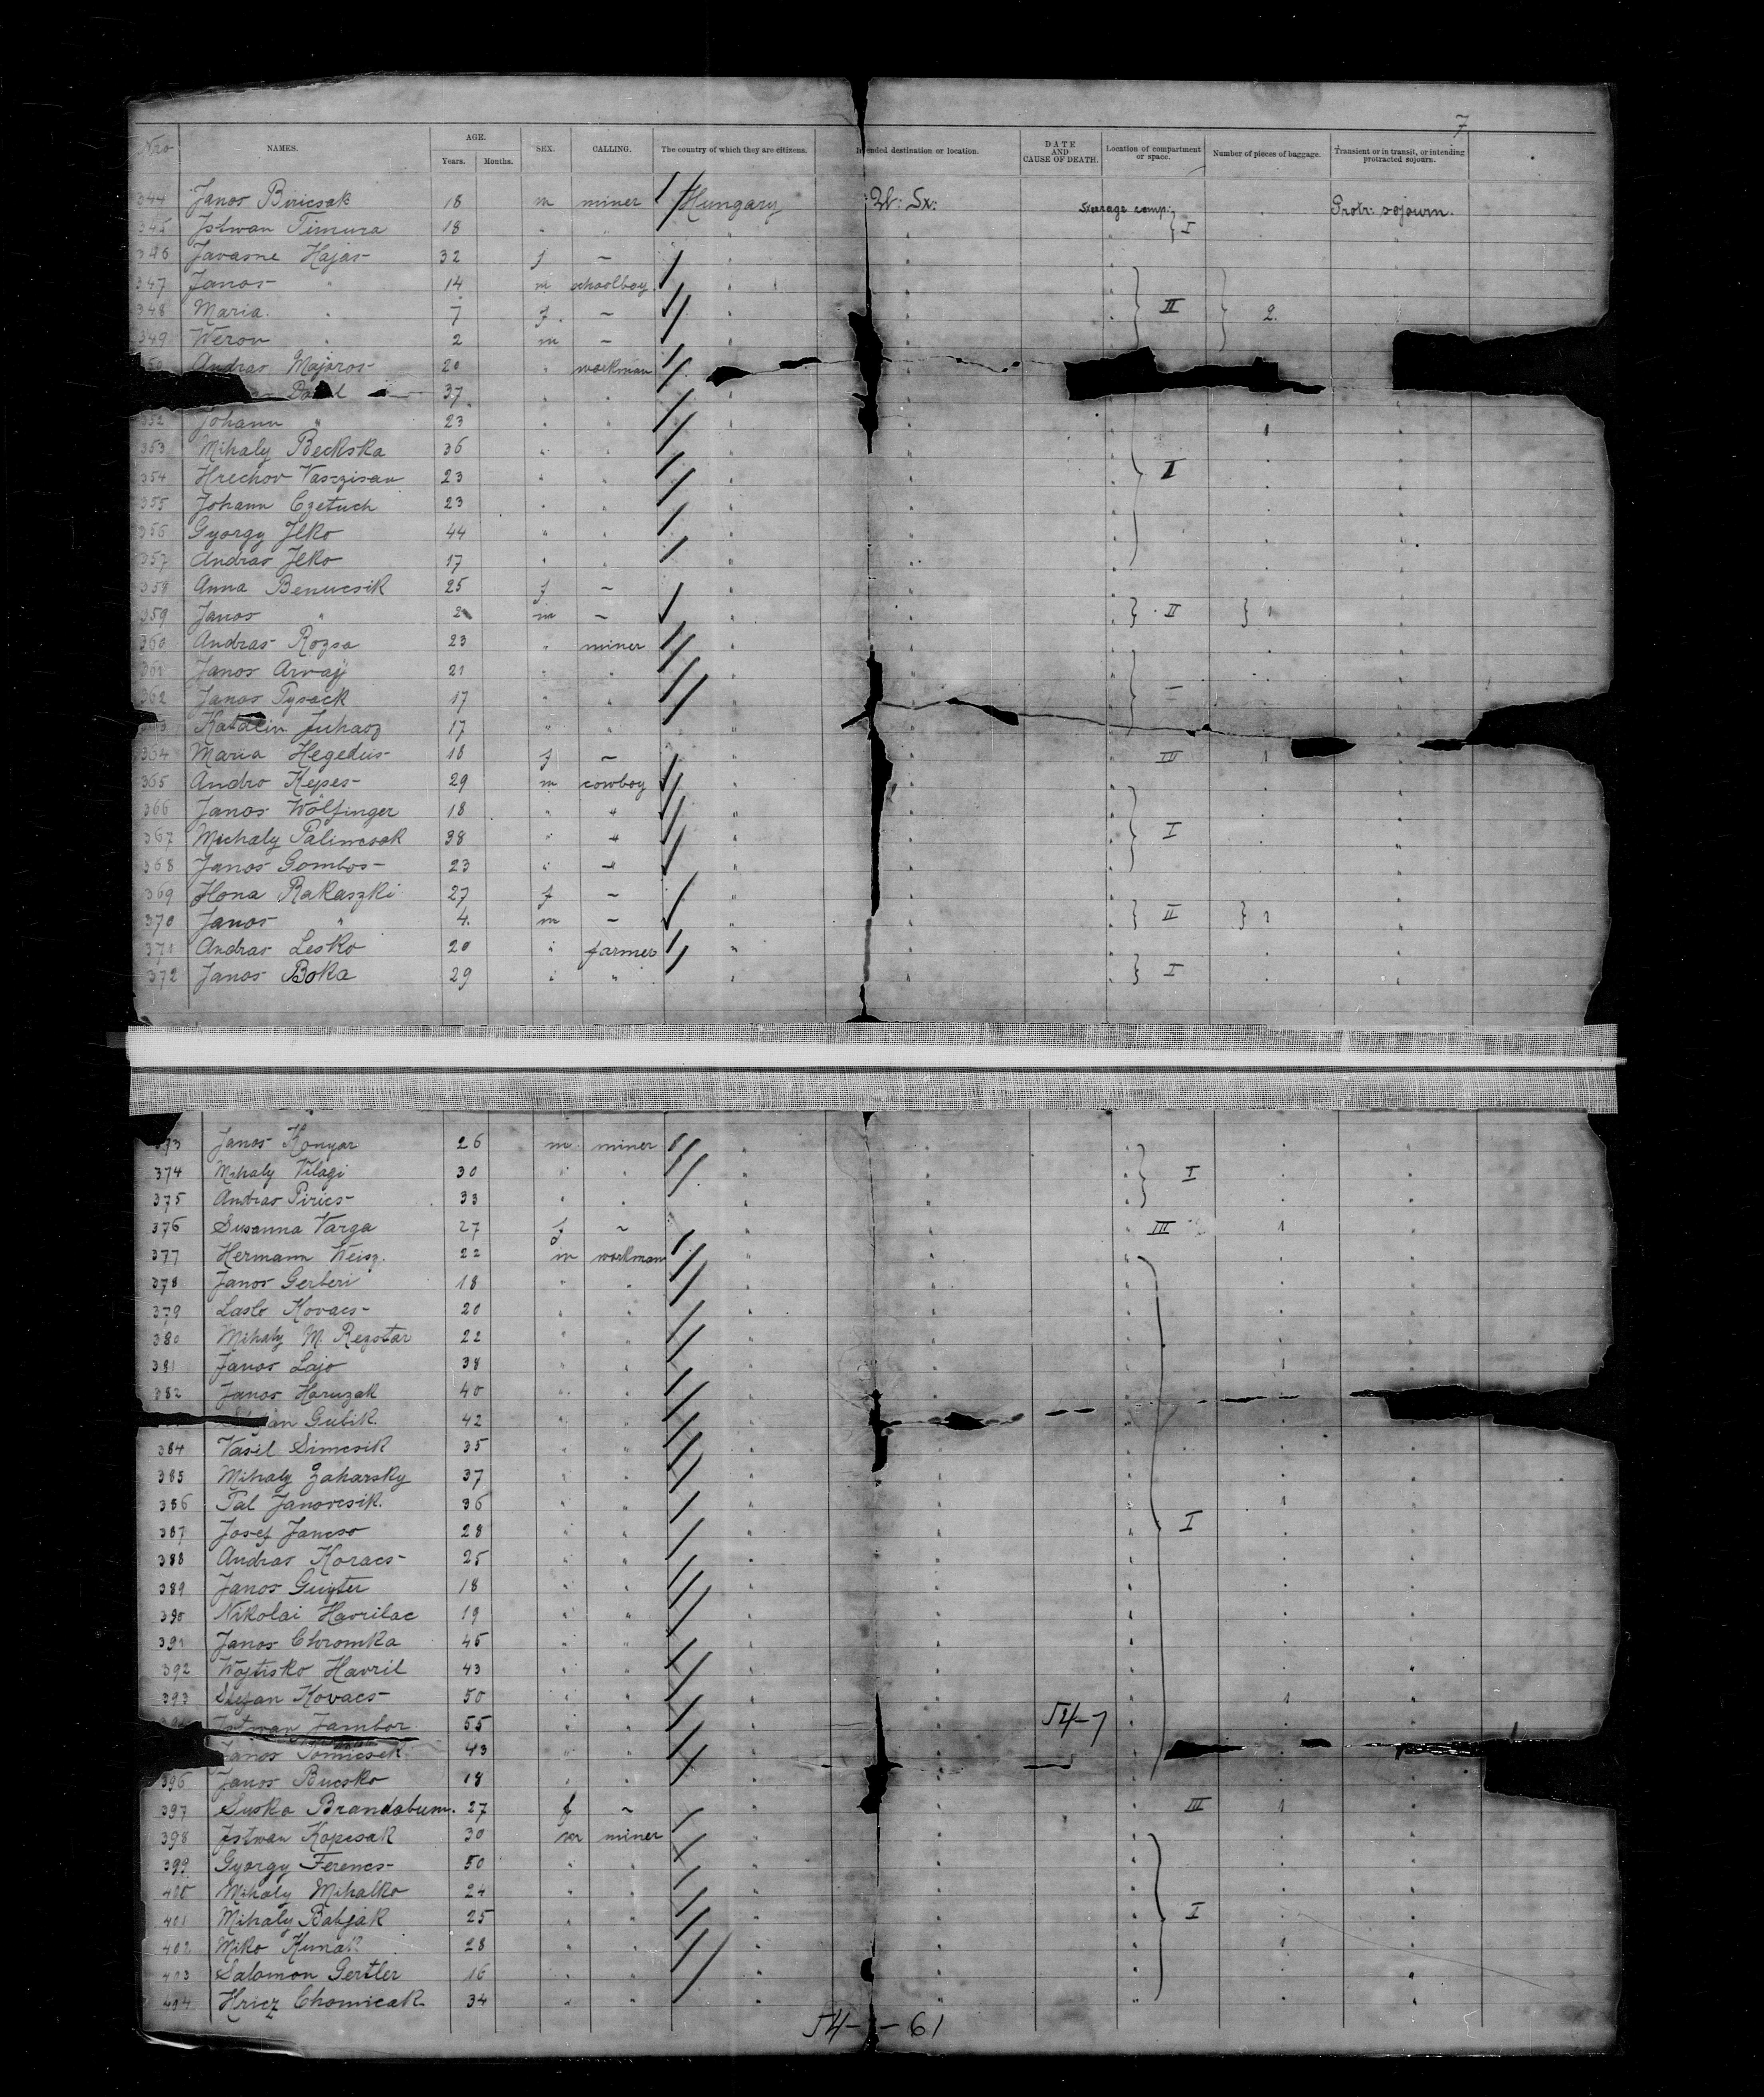 7
Nro NAMES. AGE. Years. Months. SEX. CALLING. The country of which they are citizens. Intended destination or location. DATE AND CAUSE OF DEATH. Location of compartment or space. Number of pieces of baggage. Transient or in transit, or intending protracted sojourn.
344 Janos Biricsak 18 m miner Hungary Steerage comp: Protr: sojourn.
345 Istwan Timura 18 " " " } I " "
346 Javasne Hajas 32 f – " "
347 Janos " 14 m schoolboy " "
348 Maria " 7 f – " " II 2
349 Weron " 2 m – " "
Andras Majoros 20 " workman " "
37 " " " "
352 Johann " 23 " " " " 1 "
353 Mihaly Beckska 36 " " " " " "
354 Hrechov Vaszisan 23 " " " " I " "
355 Johann Czetuch 23 " " " " " "
356 Gyorgy Ilko 44 " " " " " "
357 Andras Ilko 17 " " " " " "
358 Anna Benucsik 25 f – " " "
359 Janos " 2 m – " " } II } 1 "
360 Andras Rozsa 23 " miner " " " "
361 Janos Arvay 21 " " " " – " "
362 Janos Pysack 17 " " " " " "
363 Katalin Juhasz 17 " " " "
364 Maria Hegedus 18 f – " " III 1 "
365 Andro Kepes 29 m cowboy " " " "
366 Janos Wolfinger 18 " " " " " "
367 Michaly Palincsak 38 " " " " I " "
368 Janos Gombos 23 " " " " " "
369 Ilona Rakaszki 27 f – " " "
370 Janos " 4 m – " " } II } 1 "
371 Andras Lesko 20 " farmer " " " "
372 Janos Boka 29 " " " " } I " "
373 Janos Konyar 26 m miner " " " "
374 Mihaly Vilagi 30 " " " " I " "
375 Andras Pirics 33 " " " " " "
376 Susanna Varga 27 f – " " III 1 "
377 Hermann Weisz. 22 m workman " " " "
378 Janos Gerberi 18 " " " " " "
379 Laslo Kovacs 20 " " " " " "
380 Mihaly M. Regotar 22 " " " " " "
381 Janos Lajo 38 " " " " 1 "
382 Janos Haruzak 40 " " " " " "
Gubik. 42 " " " "
384 Vasil Simcsik 35 " " " " " "
385 Mihaly Zaharsky 37 " " " " " "
386 Pal Janovcsik. 36 " " " " 1 "
387 Josef Jancso 28 " " " " I " "
388 Andras Koracs 25 " " " " " "
389 Janos 18 " " " " " "
390 Nikolai Havrilac 19 " " " " " "
391 Janos Chromka 45 " " " " " "
392 Wojtisko Havril 43 " " " " " "
393 Stefan Kovacs 50 " " " " 1 "
Istwan Jambor 55 " " " " 54-7 " "
Janos Tomicsek 43 " " " "
396 Janos Bucsko 18 " " " " " "
397 Suska Brandabum. 27 f – " " III 1 "
398 Istwan Kopcsak 30 m miner " " " "
399 Gyorgy Ferencs 50 " " " " " "
400 Mihaly Mihalko 24 " " " " " "
401 Mihaly Babjak 25 " " " " I " "
402 Miko Kunak 28 " " " " 1 "
403 Salomon Gertler 16 " " " " " "
404 Hricz Chomicak 34 " " " " " "
61